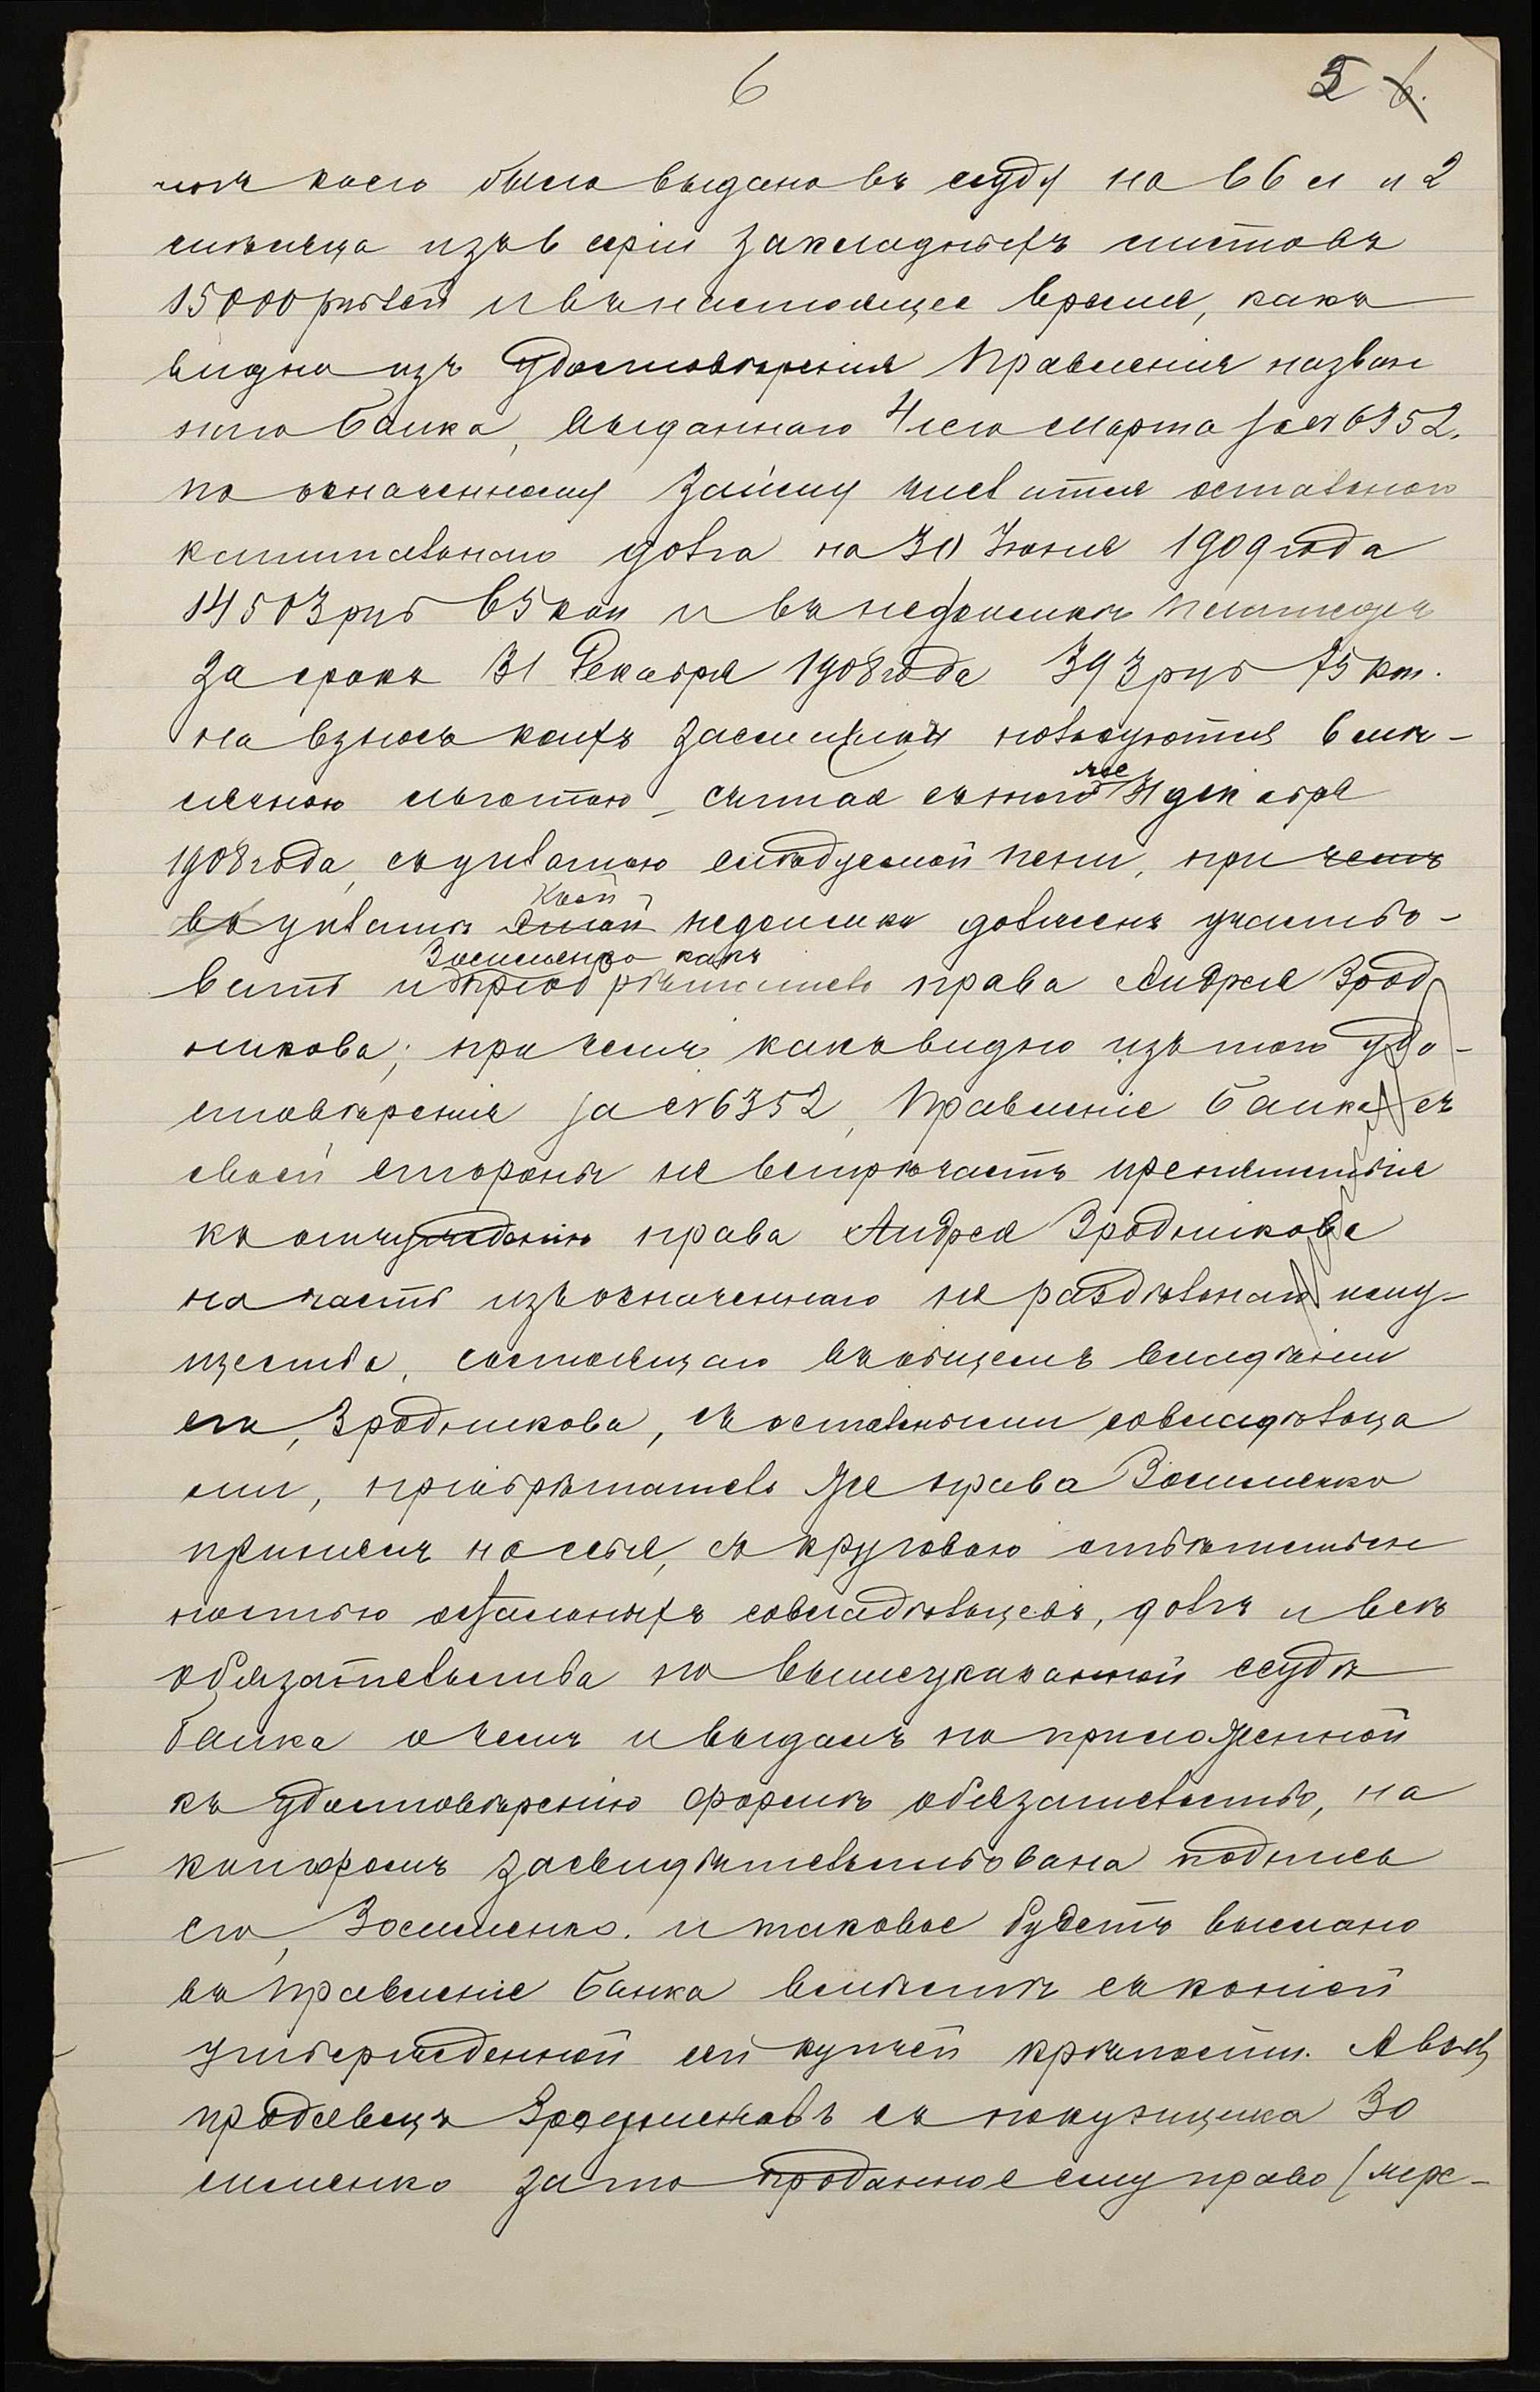 6 5 6.
логъ коего было выдано въ ссуду на 66 л и 2
мѣсяца изъ 6 серіи закладныхъ листовъ
15000 рублей и въ настоящее время, какъ
видно изъ удостовѣренія Правленія назван
наго банка, выданнаго 4го марта за № 6352.
по означенному займу числится остального
капитальнаго долга на 30 Іюня 1909 года
14503 руб 65 коп и въ недоимкѣ платежъ
за срокъ 31 Декабря 1908 года 393 руб 75 коп.
на взносъ коихъ заемщики пользуются 6 мѣ-
сячною льготою, считая съ того же 31 декабря
1908 года, съ уплатою слѣдуемой пени, при чемъ
въ уплатѣ коей недоимки долженъ участво-
вать и Зосименко какъ пріобрѣтатель права Андрея Зрод
никова; при чемъ какъ видно изъ того удо-
стовѣренія за № 6352, Правленіе банка съ
своей стороны не встрѣчаетъ препятствія
къ отчужденію права Андрея Зродникова
на часть изъ означеннаго не раздѣльнаго иму-
щества, состоящаго въ общемъ владѣніи
его, Зродникова, съ остальными совладѣльца
ми, пріобрѣтатель же права Зосименко
принялъ на себя, съ круговою отвѣтствен
ностью остальныхъ совладѣльцевъ, долгъ и всѣ
обязательства по вышеуказанной ссудѣ
банка о чемъ и выдалъ по приложенной
къ удостовѣренію формѣ обязательство, на
которомъ засвидѣтельствована подпись
его, Зосименко. и таковое будетъ выслано
въ Правленіе банка вмѣстѣ съ копіей
утвержденной сей купчей крѣпости. А взялъ
продавецъ Зродниковъ съ покупщика Зо
сименко за то проданное ему право (мере-